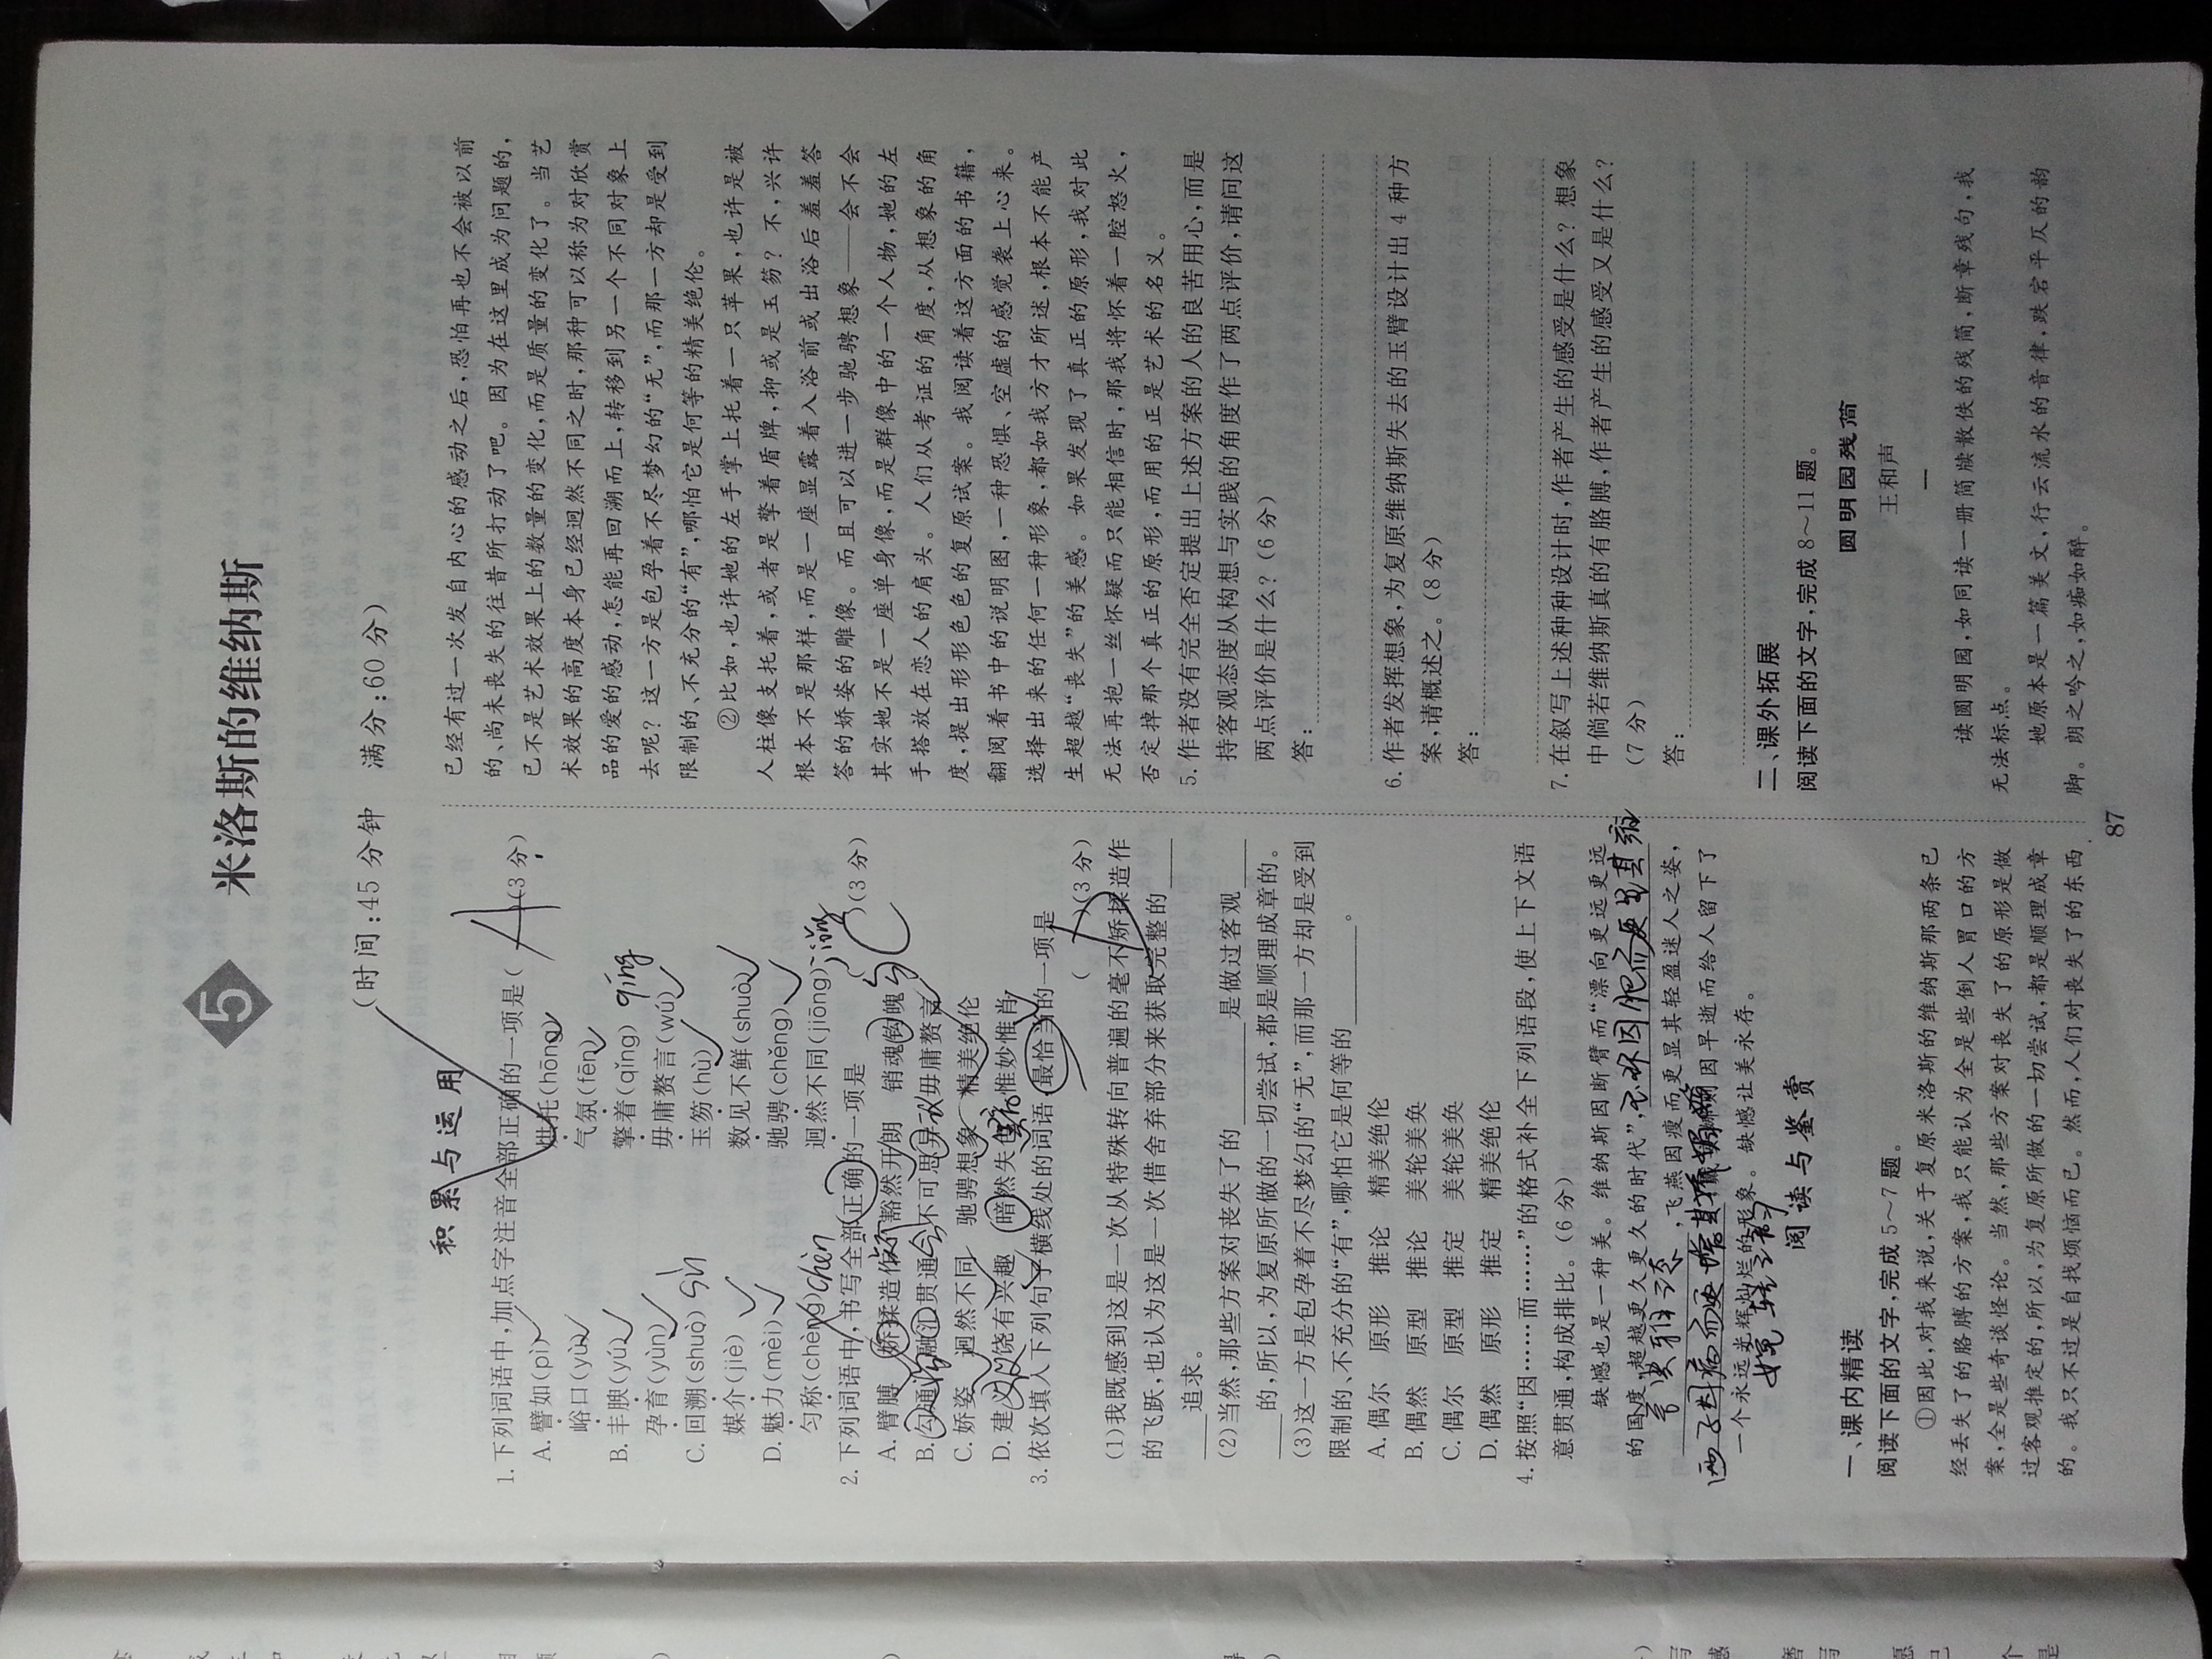 5 米洛斯的维纳斯
(时间:45分钟 满分:60分)
积累与运用
1.下列词语中,加点字注音全部正确的一项是( A )(3分)
A.譬如(pì) 烘托(hōng)
峪口(yù) 气氛(fēn)
B.丰腴(yú) 擎着(qǐng) qíng
孕育(yùn) 毋庸赘言(wú)
C.回溯(shuò) sù 玉笏(hù)
媒介(jiè) 数见不鲜(shuò)
D.魅力(mèi) 驰骋(chěng)
匀称(chèng) chèn 迥然不同(jiōng) jiǒng
2.下列词语中,书写全部正确的一项是 ( C )(3分)
A.臂膊 娇揉造作 豁然开朗 销魂钩魄 勾
B.勾通 沟 融汇贯通 会 不可思异 议 毋庸赘言
C.娇姿 迥然不同 驰骋想象 精美绝伦
D.建义 议 饶有兴趣 暗然失色 黯 惟妙惟肖
3.依次填入下列句子横线处的词语,最恰当的一项是
( D )(3分)
(1)我既感到这是一次从特殊转向普遍的毫不矫揉造作
的飞跃,也认为这是一次借舍弃部分来获取完整的____
___追求。
(2)当然,那些方案对丧失了的_______是做过客观____
___的,所以,为复原所做的一切尝试,都是顺理成章的。
(3)这一方是包孕着不尽梦幻的“无”,而那一方却是受到
限制的、不充分的“有”,哪怕它是何等的_______。
A.偶尔 原形 推论 精美绝伦
B.偶然 原型 推论 美轮美奂
C.偶尔 原型 推定 美轮美奂
D.偶然 原形 推定 精美绝伦
4.按照“因……而……”的格式补全下列语段,使上下文语
意贯通,构成排比。(6分)
缺憾也是一种美。维纳斯因断臂而“漂向更远更远
的国度,超越更久更久的时代”,玉环因肥而更显其雍
容典雅之态,飞燕因瘦而更显其轻盈迷人之姿,
西子因病而更增其娇媚 因早逝而给人留下了
一个永远光辉灿烂的形象。缺憾让美永存。
婉转之韵
阅读与鉴赏
一、课内精读
阅读下面的文字,完成5~7题。
①因此,对我来说,关于复原米洛斯的维纳斯那两条已
经丢失了的胳膊的方案,我只能认为全是些倒人胃口的方
案,全是些奇谈怪论。当然,那些方案对丧失了的原形是做
过客观推定的,所以,为复原所做的一切尝试,都是顺理成章
的。我只不过是自找烦恼而已。然而,人们对丧失了的东西
已经有过一次发自内心的感动之后,恐怕再也不会被以前
的、尚未丧失的往昔所打动了吧。因为在这里成为问题的,
已不是艺术效果上的数量的变化,而是质量的变化了。当艺
术效果的高度本身已经迥然不同之时,那种可以称为对欣赏
品的爱的感动,怎能再回溯而上,转移到另一个不同对象上
去呢?这一方是包孕着不尽梦幻的“无”,而那一方却是受到
限制的、不充分的“有”,哪怕它是何等的精美绝伦。
②比如,也许她的左手掌上托着一只苹果,也许是被
人柱像支托着,或者是擎着盾牌,抑或是玉笏?不,兴许
根本不是那样,而是一座显露着入浴前或出浴后羞羞答
答的娇姿的雕像。而且可以进一步驰骋想象——会不会
其实她不是一座单身像,而是群像中的一个人物,她的左
手搭放在恋人的肩头。人们从考证的角度,从想象的角
度,提出形形色色的复原试案。我阅读着这方面的书籍,
翻阅着书中的说明图,一种恐惧、空虚的感觉袭上心来。
选择出来的任何一种形象,都如我方才所述,根本不能产
生超越“丧失”的美感。如果发现了真正的原形,我对此
无法再抱一丝怀疑而只能相信时,那我将怀着一腔怒火,
否定掉那个真正的原形,而用的正是艺术的名义。
5.作者没有完全否定提出上述方案的人的良苦用心,而是
持客观态度从构想与实践的角度作了两点评价,请问这
两点评价是什么?(6分)
答:
6.作者发挥想象,为复原维纳斯失去的玉臂设计出4种方
案,请概述之。(8分)
答:
7.在叙写上述种种设计时,作者产生的感受是什么?想象
中倘若维纳斯真的有胳膊,作者产生的感受又是什么?
(7分)
答:
二、课外拓展
阅读下面的文字,完成8~11题。
圆明园残简
王和声
一
读圆明园,如同读一册简牍散佚的残简,断章残句,我
无法标点。
她原本是一篇美文,行云流水的音律,跌宕平仄的韵
脚。朗之吟之,如痴如醉。
87